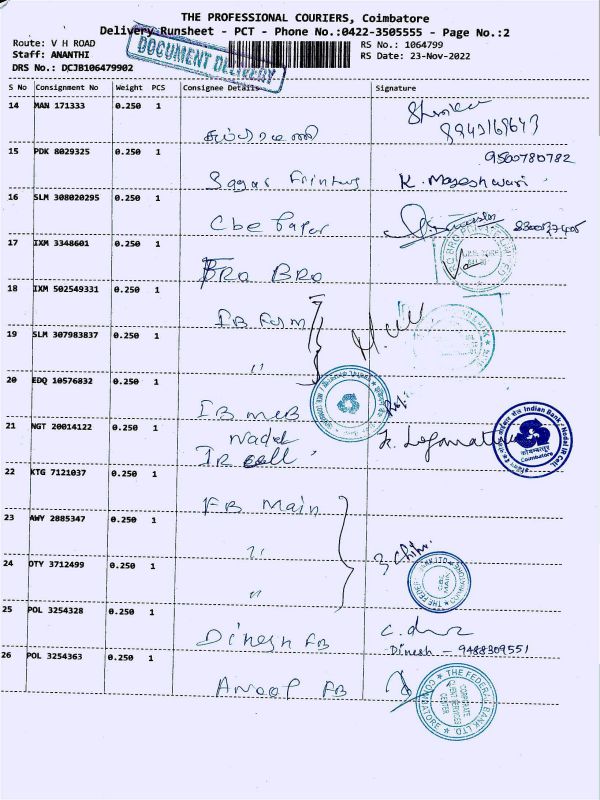 THE PROFESSIONAL COURIERS, Coimbatore
Delivery Runsheet - PCT - Phone No.:0422-3505555 - Page No.:2
Route: V H ROAD
RS No.: 1064799
Staff: ANANTHI
RS Date: 23-Nov-2022
DRS No.: DCJB106479902
DOCUMENT DELIVERY
S No Consignment No Weight PCS Consignee Details Signature
14 MAN 171333 0.250 1
8943169643
15 PDK 8029325 0.250 1
9500780782
Sagar Printing K. Mageshwari
16 SLM 308020295 0.250 1
Cbe Paper
17 IXM 3348601 0.250 1
BRO BRO
18 IXM 502549331 0.250 1
19 SLM 307983837 0.250 1
"
20 EDQ 10576832 0.250 1
IB
21 NGT 20014122 0.250 1
Nodal
IR cell
Indian Bank / Nodal IR Cell
कोयम्बत्तूर
Coimbatore
22 KTG 7121037 0.250 1
FB Main
23 AWY 2885347 0.250 1
"
24 OTY 3712499 0.250 1
"
25 POL 3254328 0.250 1
Dinesh FB
Dinesh - 9488309551
26 POL 3254363 0.250 1
Anoop FB
THE FEDERAL BANK LTD
CORPORATE
CLIENT SERVICES
CENTER
COIMBATORE